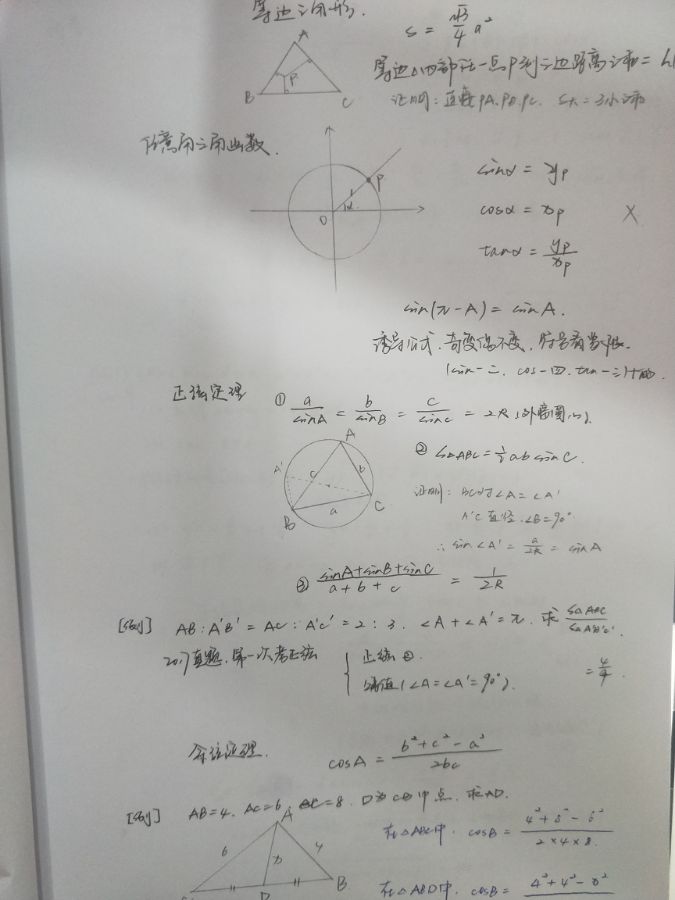 等边三角形.
S = √3/4 a²
A
P
B
C
等边△内部任一点P到三边距离之和 = h
证明: 连接PA.PB.PC. S大 = 3小之和
任意角三角函数.
P
1
O
α
sinα = yp
cosα = xp
tanα = yp/xp
sin(π-A) = sinA.
诱导公式. 奇变偶不变, 符号看象限.
(sin-二. cos-四. tan-三)+
正弦定理
① a/sinA = b/sinB = c/sinC = 2R (外接圆)
② S△ABC = 1/2 ab sinC.
A
A'
c
b
B
a
C
证明: BC对∠A = ∠A'
A'C直径. ∠B = 90°
∴ sin∠A' = a/2R = sinA
③ (sinA+sinB+sinC)/(a+b+c) = 1/2R
[例] AB:A'B' = AC:A'C' = 2:3. ∠A+∠A' = π. 求 S△ABC/S△A'B'C'.
2017真题, 第一次考正弦
正弦②.
特值(∠A = ∠A' = 90°).
= 4/9
余弦定理. cosA = (b²+c²-a²)/2bc
[例] AB=4. AC=6. BC=8. D为CB中点. 求AD.
在△ABC中. cosB = (4²+8²-6²)/(2×4×8)
A
6
x
4
B
D
在△ABD中. cosB = 4²+4²-x²